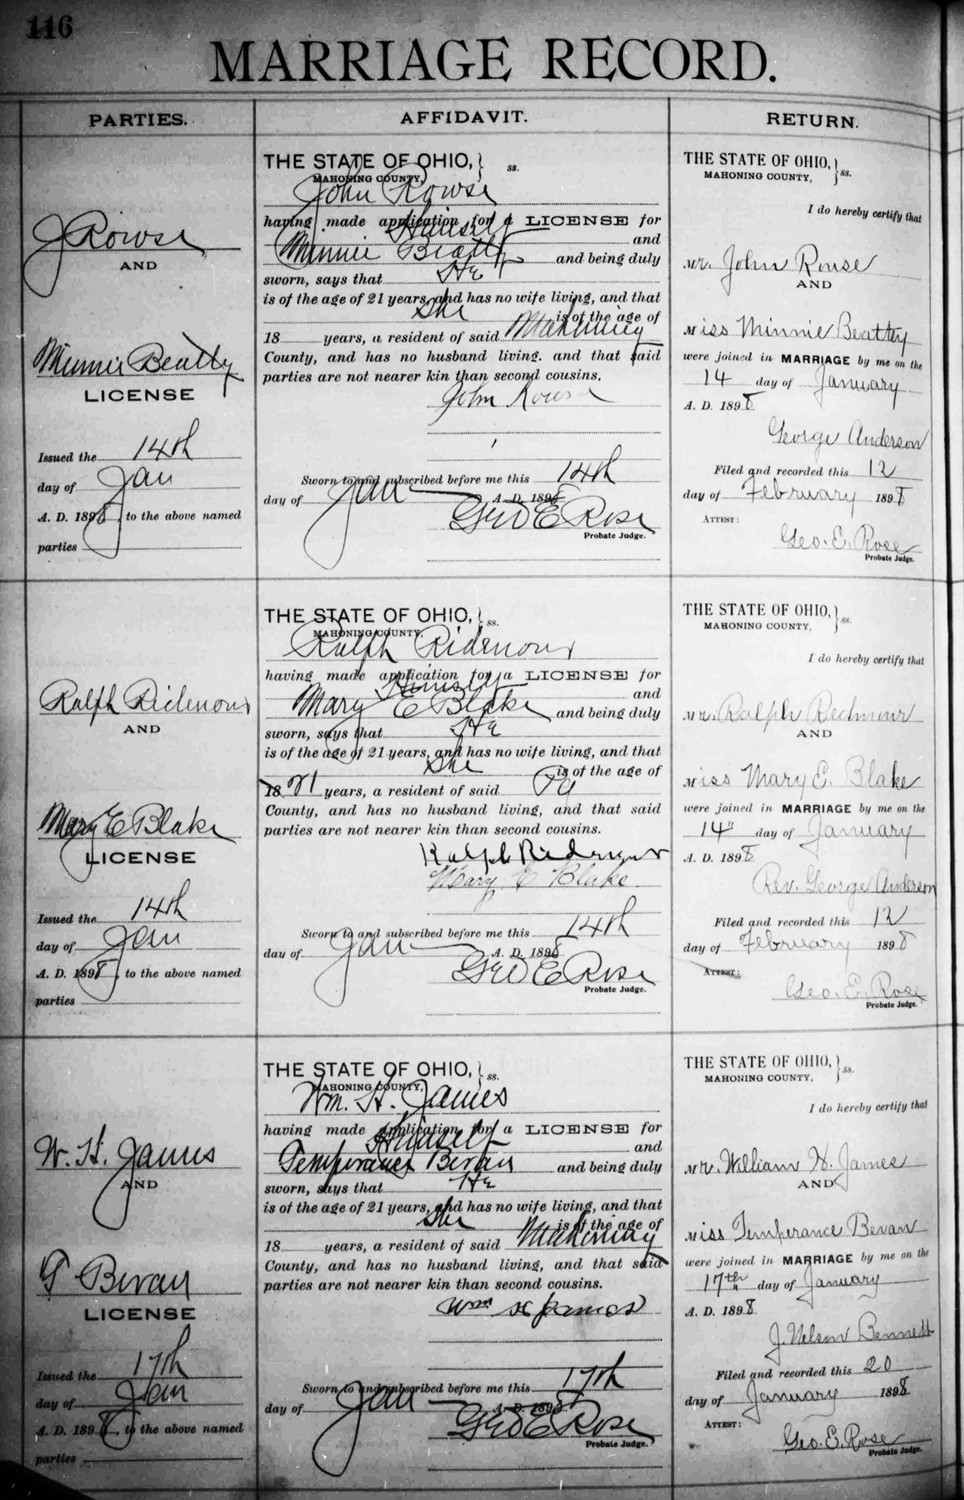 116
MARRIAGE RECORD.
PARTIES.
AFFIDAVIT.
RETURN.
J Rowse
AND
Minnie Beatty
LICENSE
Issued the 14th
day of Jan
A. D. 1898, to the above named
parties
THE STATE OF OHIO, } ss.
MAHONING COUNTY,
John Rowse
having made application for a LICENSE for
Himself and
Minnie Beatty and being duly
sworn, says that He
is of the age of 21 years, and has no wife living, and that
She is of the age of
18 years, a resident of said Mahoning
County, and has no husband living. and that said
parties are not nearer kin than second cousins.
John Rowse
Sworn to and subscribed before me this 14th
day of Jan A. D. 1898
Geo E Rose
Probate Judge.
THE STATE OF OHIO, } ss.
MAHONING COUNTY,
I do hereby certify that
Mr. John Rouse
AND
Miss Minnie Beattey
were joined in MARRIAGE by me on the
14 day of January
A. D. 1898
George Anderson
Filed and recorded this 12
day of February 1898
ATTEST:
Geo. E. Rose
Probate Judge.
Ralph Ridenour
AND
Mary E Blake
LICENSE
Issued the 14th
day of Jan
A. D. 1898, to the above named
parties
THE STATE OF OHIO, } ss.
MAHONING COUNTY,
Ralph Ridenour
having made application for a LICENSE for
Himself and
Mary E Blake and being duly
sworn, says that He
is of the age of 21 years, and has no wife living, and that
She is of the age of
18 21 years, a resident of said Pa
County, and has no husband living, and that said
parties are not nearer kin than second cousins.
Ralph Ridenour
Mary E Blake.
Sworn to and subscribed before me this 14th
day of Jan A. D. 1898
Geo E Rose
Probate Judge.
THE STATE OF OHIO, } ss.
MAHONING COUNTY,
I do hereby certify that
Mr. Ralph Redmour
AND
Miss Mary E. Blake
were joined in MARRIAGE by me on the
14" day of January
A. D. 1898
Rev. George Anderson
Filed and recorded this 12
day of February 1898
ATTEST:
Geo. E. Rose
Probate Judge.
W. H. James
AND
T Bevan
LICENSE
Issued the 17th
day of Jan
A. D. 1898, to the above named
parties
THE STATE OF OHIO, } ss.
MAHONING COUNTY,
Wm. H. James
having made application for a LICENSE for
Himself and
Temperance Bevan and being duly
sworn, says that He
is of the age of 21 years, and has no wife living, and that
She is of the age of
18 years, a resident of said Mahoning
County, and has no husband living, and that said
parties are not nearer kin than second cousins.
Wm H James
Sworn to and subscribed before me this 17th
day of Jan A. D. 1898
Geo E Rose
Probate Judge.
THE STATE OF OHIO, } ss.
MAHONING COUNTY,
I do hereby certify that
Mr. William H. James
AND
Miss Temperance Bevan
were joined in MARRIAGE by me on the
17th day of January
A. D. 1898
J. Nelson Bennett
Filed and recorded this 20
day of January 1898
ATTEST:
Geo. E. Rose
Probate Judge.